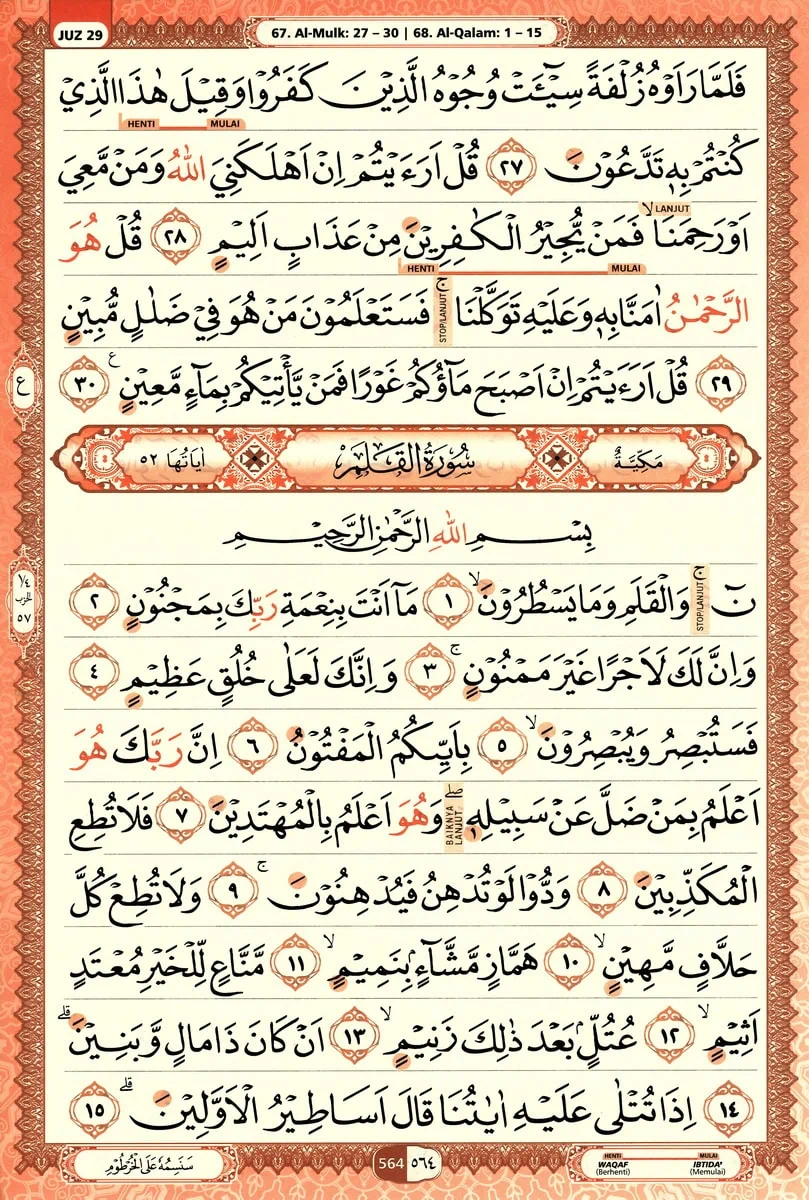 JUZ 29
67. Al-Mulk: 27 – 30 | 68. Al-Qalam: 1 – 15
فَلَمَّا رَاَوْهُ زُلْفَةً سِيْۤـَٔتْ وُجُوْهُ الَّذِيْنَ كَفَرُوْا وَقِيْلَ هٰذَا الَّذِيْ
HENTI MULAI
كُنْتُمْ بِهٖ تَدَّعُوْنَ ٢٧ قُلْ اَرَءَيْتُمْ اِنْ اَهْلَكَنِيَ اللّٰهُ وَمَنْ مَّعِيَ
اَوْ رَحِمَنَا ۙ LANJUT فَمَنْ يُّجِيْرُ الْكٰفِرِيْنَ مِنْ عَذَابٍ اَلِيْمٍ ٢٨ قُلْ هُوَ
HENTI MULAI
الرَّحْمٰنُ اٰمَنَّا بِهٖ وَعَلَيْهِ تَوَكَّلْنَا ۚ STOP/LANJUT فَسَتَعْلَمُوْنَ مَنْ هُوَ فِيْ ضَلٰلٍ مُّبِيْنٍ
٢٩ قُلْ اَرَءَيْتُمْ اِنْ اَصْبَحَ مَاۤؤُكُمْ غَوْرًا فَمَنْ يَّأْتِيْكُمْ بِمَاۤءٍ مَّعِيْنٍ ࣖ ٣٠
ع
مَكِّيَّةٌ سُوْرَةُ الْقَلَمِ اٰيَاتُهَا ٥٢
بِسْمِ اللّٰهِ الرَّحْمٰنِ الرَّحِيْمِ
١/٤ الحزب ٥٧
نۤ ۚ STOP/LANJUT وَالْقَلَمِ وَمَا يَسْطُرُوْنَ ۙ ١ مَآ اَنْتَ بِنِعْمَةِ رَبِّكَ بِمَجْنُوْنٍ ٢
وَاِنَّ لَكَ لَاَجْرًا غَيْرَ مَمْنُوْنٍ ۚ ٣ وَاِنَّكَ لَعَلٰى خُلُقٍ عَظِيْمٍ ٤
فَسَتُبْصِرُ وَيُبْصِرُوْنَ ۙ ٥ بِاَيِّىكُمُ الْمَفْتُوْنُ ٦ اِنَّ رَبَّكَ هُوَ
اَعْلَمُ بِمَنْ ضَلَّ عَنْ سَبِيْلِهٖ ۖ BAIKNYA LANJUT وَهُوَ اَعْلَمُ بِالْمُهْتَدِيْنَ ٧ فَلَا تُطِعِ
الْمُكَذِّبِيْنَ ٨ وَدُّوْا لَوْ تُدْهِنُ فَيُدْهِنُوْنَ ۚ ٩ وَلَا تُطِعْ كُلَّ
حَلَّافٍ مَّهِيْنٍ ۙ ١٠ هَمَّازٍ مَّشَّاۤءٍ ۢ بِنَمِيْمٍ ۙ ١١ مَّنَّاعٍ لِّلْخَيْرِ مُعْتَدٍ
اَثِيْمٍ ۙ ١٢ عُتُلٍّ ۢ بَعْدَ ذٰلِكَ زَنِيْمٍ ۙ ١٣ اَنْ كَانَ ذَا مَالٍ وَّبَنِيْنَ ۗ
١٤ اِذَا تُتْلٰى عَلَيْهِ اٰيٰتُنَا قَالَ اَسَاطِيْرُ الْاَوَّلِيْنَ ۗ ١٥
سَنَسِمُهٗ عَلَى الْخُرْطُوْمِ
564 ٥٦٤
HENTI MULAI
WAQAF IBTIDA'
(Berhenti) (Memulai)